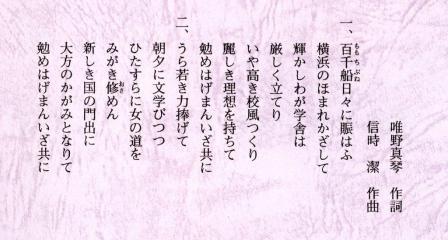 唯野真琴 作詞
信時 潔 作曲
一、百千船日々に賑はふ
横浜のほまれかざして
輝かしわが学舎は
厳しく立てり
いや高き校風つくり
麗しき理想を持ちて
勉めはげまんいざ共に
二、うら若き力捧げて
朝夕に文学びつつ
ひたすらに女の道を
みがき修めん
新しき国の門出に
大方のかがみとなりて
勉めはげまんいざ共に